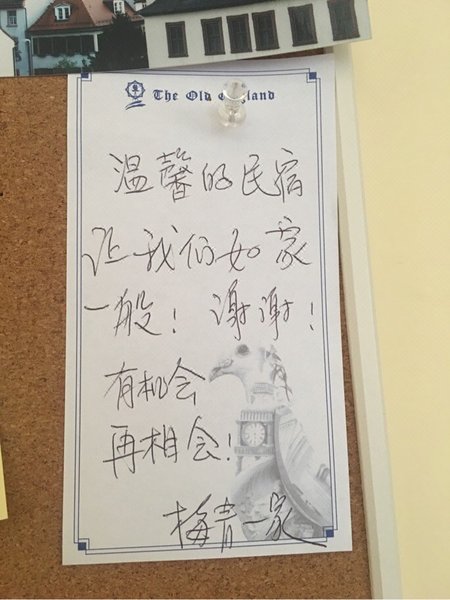 The Old England
温馨的民宿
让我们如家
一般！谢谢！
有机会
再相会！
梅青一家